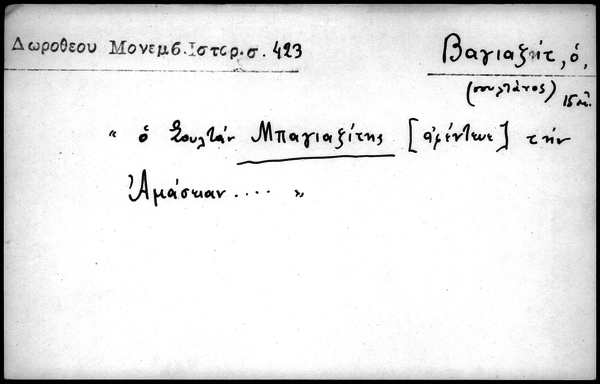 Δωροθεου Μονεμβ.Ιστορ.σ. 423
Βαγιαζήτ, ὁ,
(σουλτάνος) 15 αἰ.
" ὁ Σουλτάν Μπαγιαζίτης [ἀφέντευε] τὴν
Ἀμάσειαν .... "